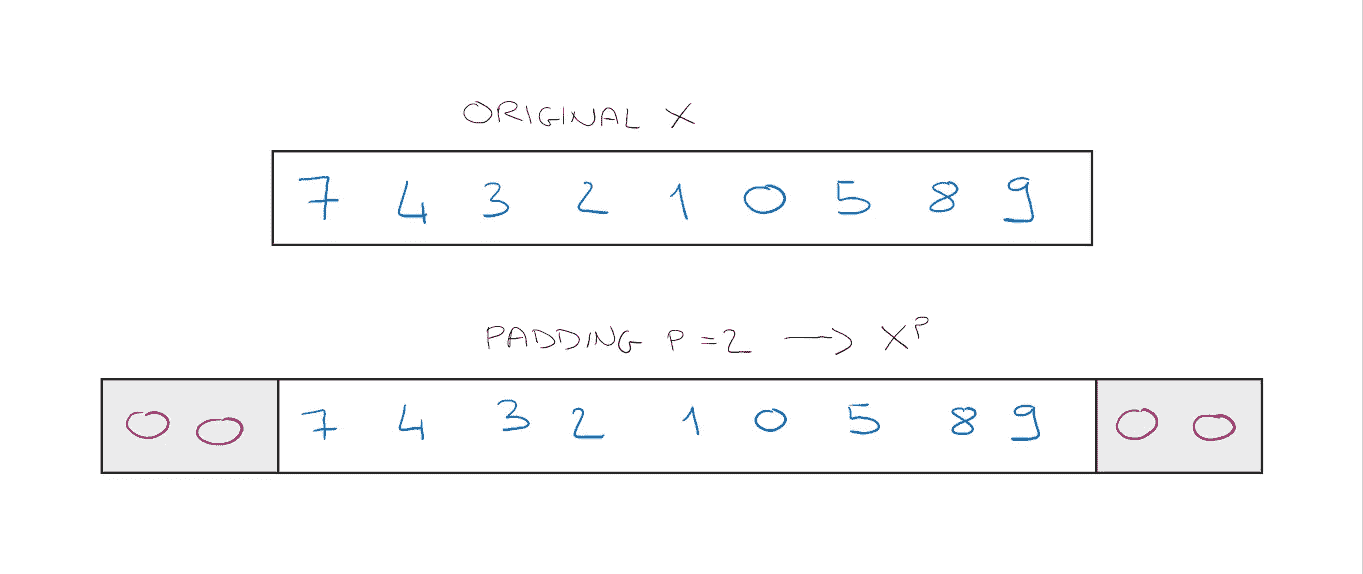 ORIGINAL X
7 4 3 2 1 0 5 8 9
PADDING P = 2 → X^P
0 0 7 4 3 2 1 0 5 8 9 0 0